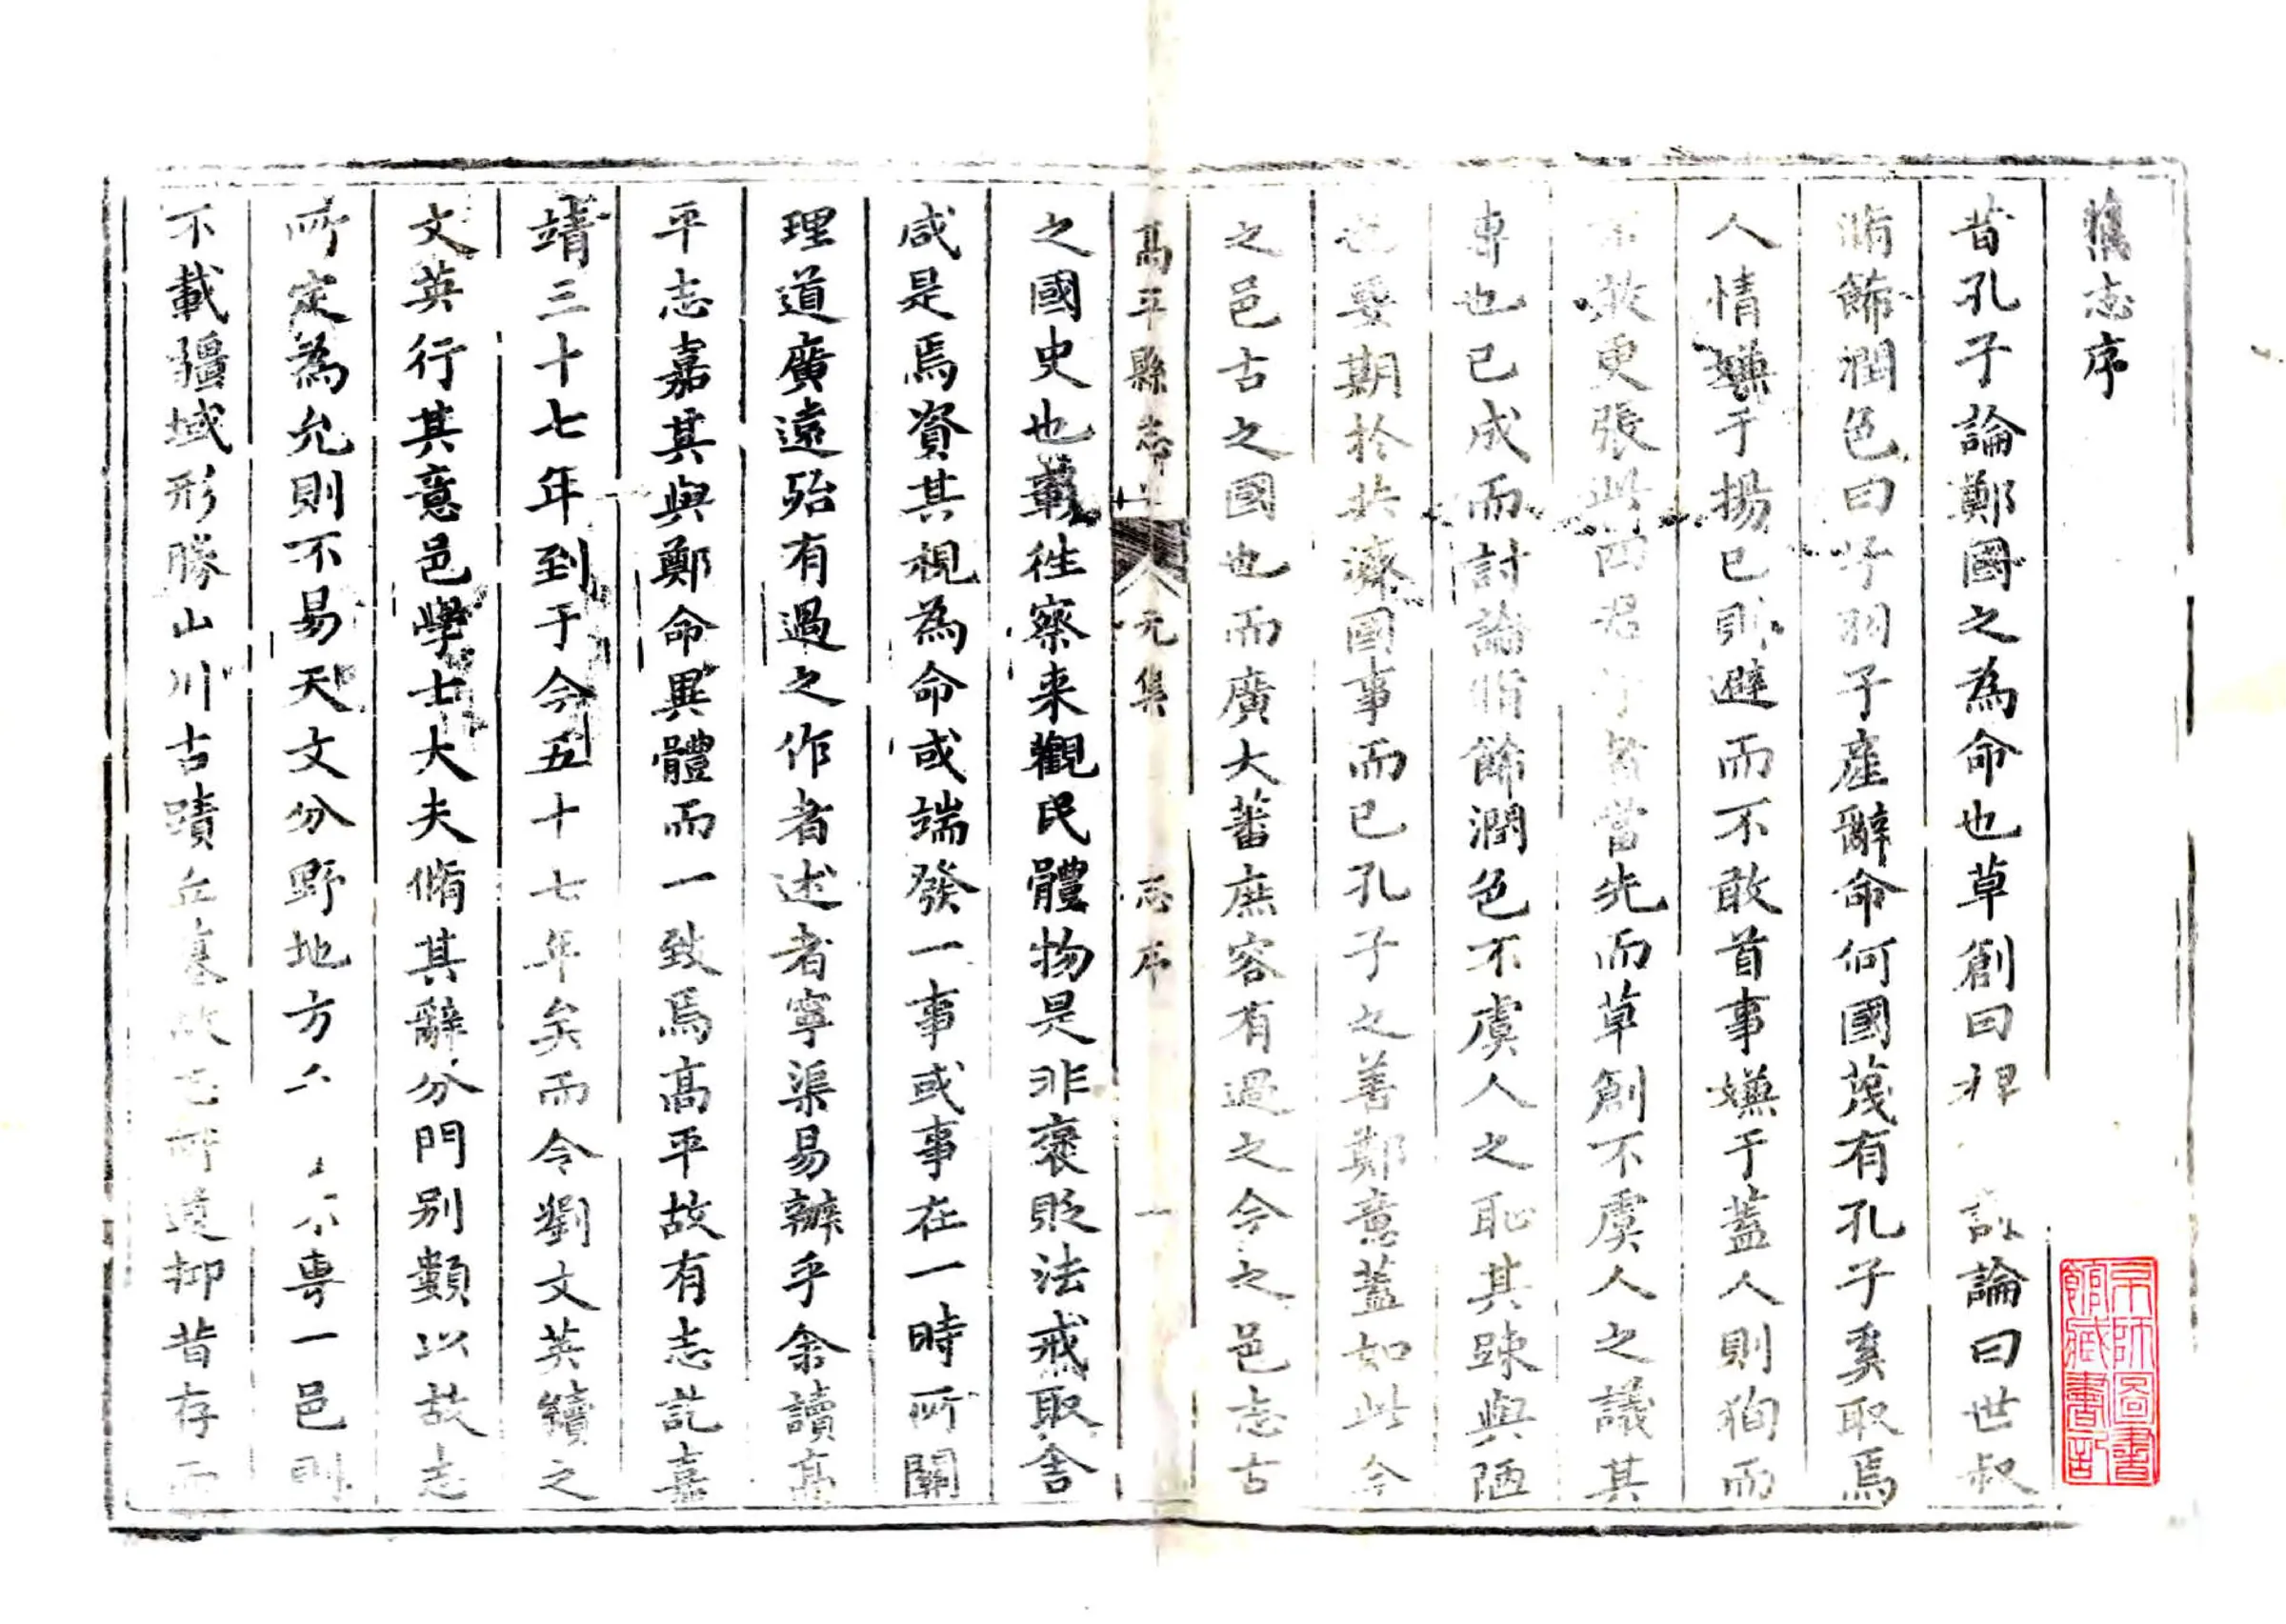 舊志序
昔孔子論鄭國之為命也草創曰裨 討論曰世叔
脩餙潤色曰子羽子產辭命何國蔑有孔子奚取焉
人情嫌于揚已則避而不敢首事嫌于蓋人則狥而
不敢更張此四君子者當先而草創不虞人之議其
專也已成而討論脩餙潤色不虞人之恥其踈與陋
也要期於共濟國事而已孔子之善鄭意蓋如此今
之邑古之國也而廣大蕃庶容有過之今之邑志古
高平縣志 元集 志序 一
之國史也載徃察来觀民體物是非褒貶法戒取舍
咸是焉資其視為命或端發一事或事在一時所關
理道廣遠殆有過之作者述者寧渠易辦乎余讀高
平志嘉其與鄭命異體而一致焉高平故有志訖嘉
靖三十七年到于今五十七年矣而令劉文英續之
文英行其意邑學士大夫脩其辭分門别類以故志
所定為允則不易天文分野地方 不專一邑則
不載疆域形勝山川古蹟丘墓故已所遺抑昔存而
京師圖書
館藏書記